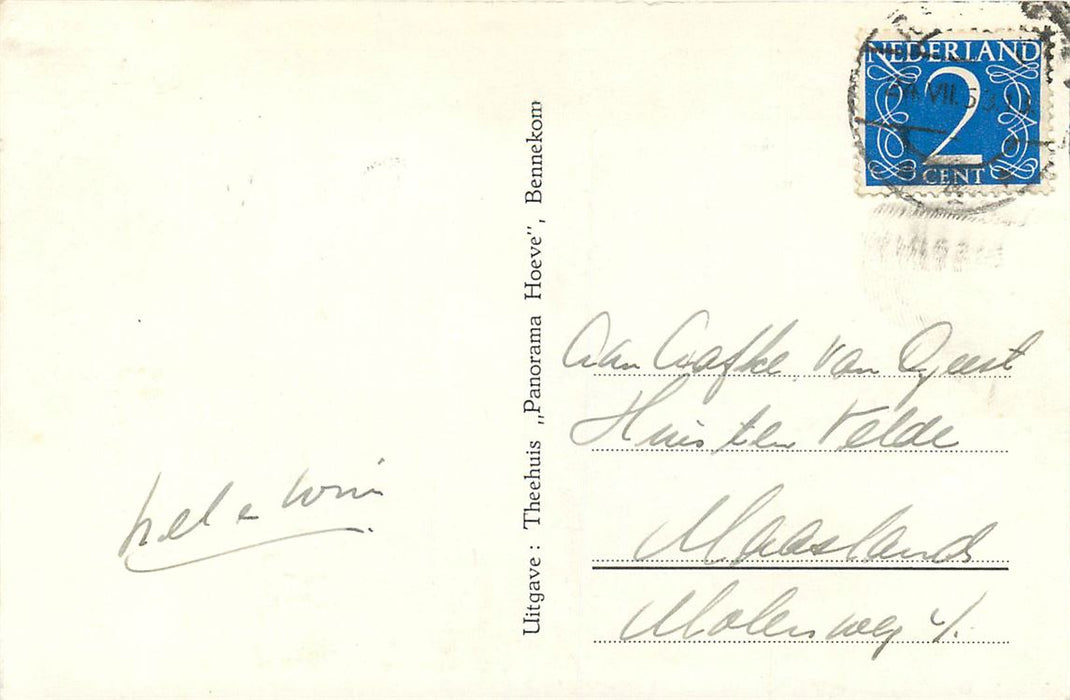 NEDERLAND
2
CENT
VII.53.
Uitgave: Theehuis „Panorama Hoeve”, Bennekom
Aan Aafke van Geest
Huis ter Velde
Maasland
Molenweg 4.
Nel e Wim